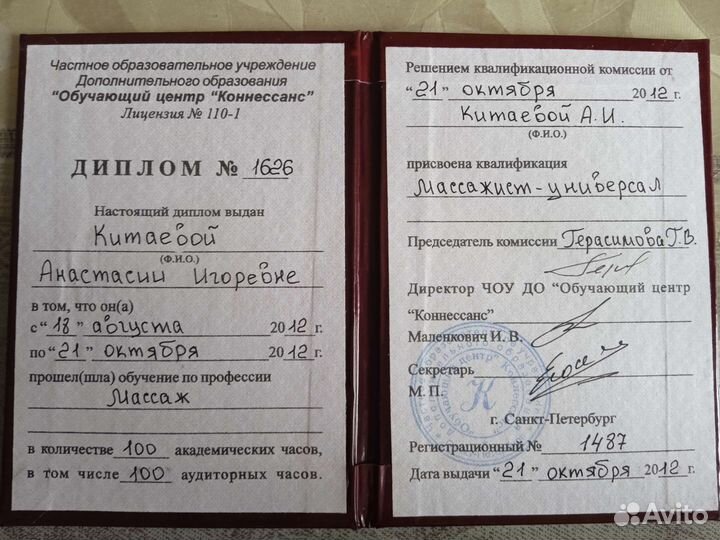 Частное образовательное учреждение
Дополнительного образования
"Обучающий центр "Коннессанс"
Лицензия № 110-1
ДИПЛОМ № 1626
Настоящий диплом выдан
Китаевой
(Ф.И.О.)
Анастасии Игоревне
в том, что он(а)
с "18" августа 2012 г.
по "21" октября 2012 г.
прошел(шла) обучение по профессии
Массаж
в количестве 100 академических часов,
в том числе 100 аудиторных часов.
Решением квалификационной комиссии от
"21" октября 2012 г.
Китаевой А.И.
(Ф.И.О.)
присвоена квалификация
Массажист-универсал
Председатель комиссии Герасимова Г.В.
Директор ЧОУ ДО "Обучающий центр
"Коннессанс"
Маленкович И. В.
Секретарь
М. П.
г. Санкт-Петербург
Регистрационный № 1487
Дата выдачи "21" октября 2012 г.
Avito